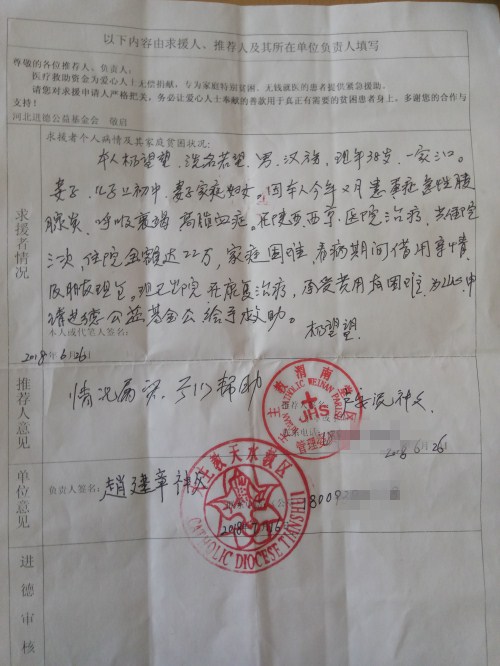 以下内容由求援人、推荐人及其所在单位负责人填写
尊敬的各位推荐人、负责人:
医疗救助资金为爱心人士无偿捐献,专为家庭特别贫困、无钱就医的患者提供紧急援助。
请您对求援申请人严格把关,务必让爱心人士奉献的善款用于真正有需要的贫困患者身上,多谢您的合作与
支持!
河北进德公益基金会 敬启
求援者情况
求援者个人病情及其家庭贫困状况:
本人杨望望,洗名若望,男,汉族,现年38岁,一家三口。
妻子,儿子上初中,妻子家庭妇女。因本人今年2月患重症急性胰
腺炎,呼吸衰竭,高脂血症。在陕西西京医院治疗,共住院
三次,住院金额达22万,家庭困难,看病期间借用亲情
及朋友现
现已出院在康复治疗,
费用
困难,为此申
请进德公益基金会给予救助。
本人或代笔人签名:
杨望望
2018年6月26日
推荐人意见
情况属实,予以帮助
推荐人
神父
联系电话:
2018 6月26日
天主教渭南教区
CATHOLIC WEINAN
JHS
管理
单位意见
负责人签名:
趙建章神父
8009
天主教天水教区
2018
CATHOLIC DIOCESE TIANSHUI
进德审核